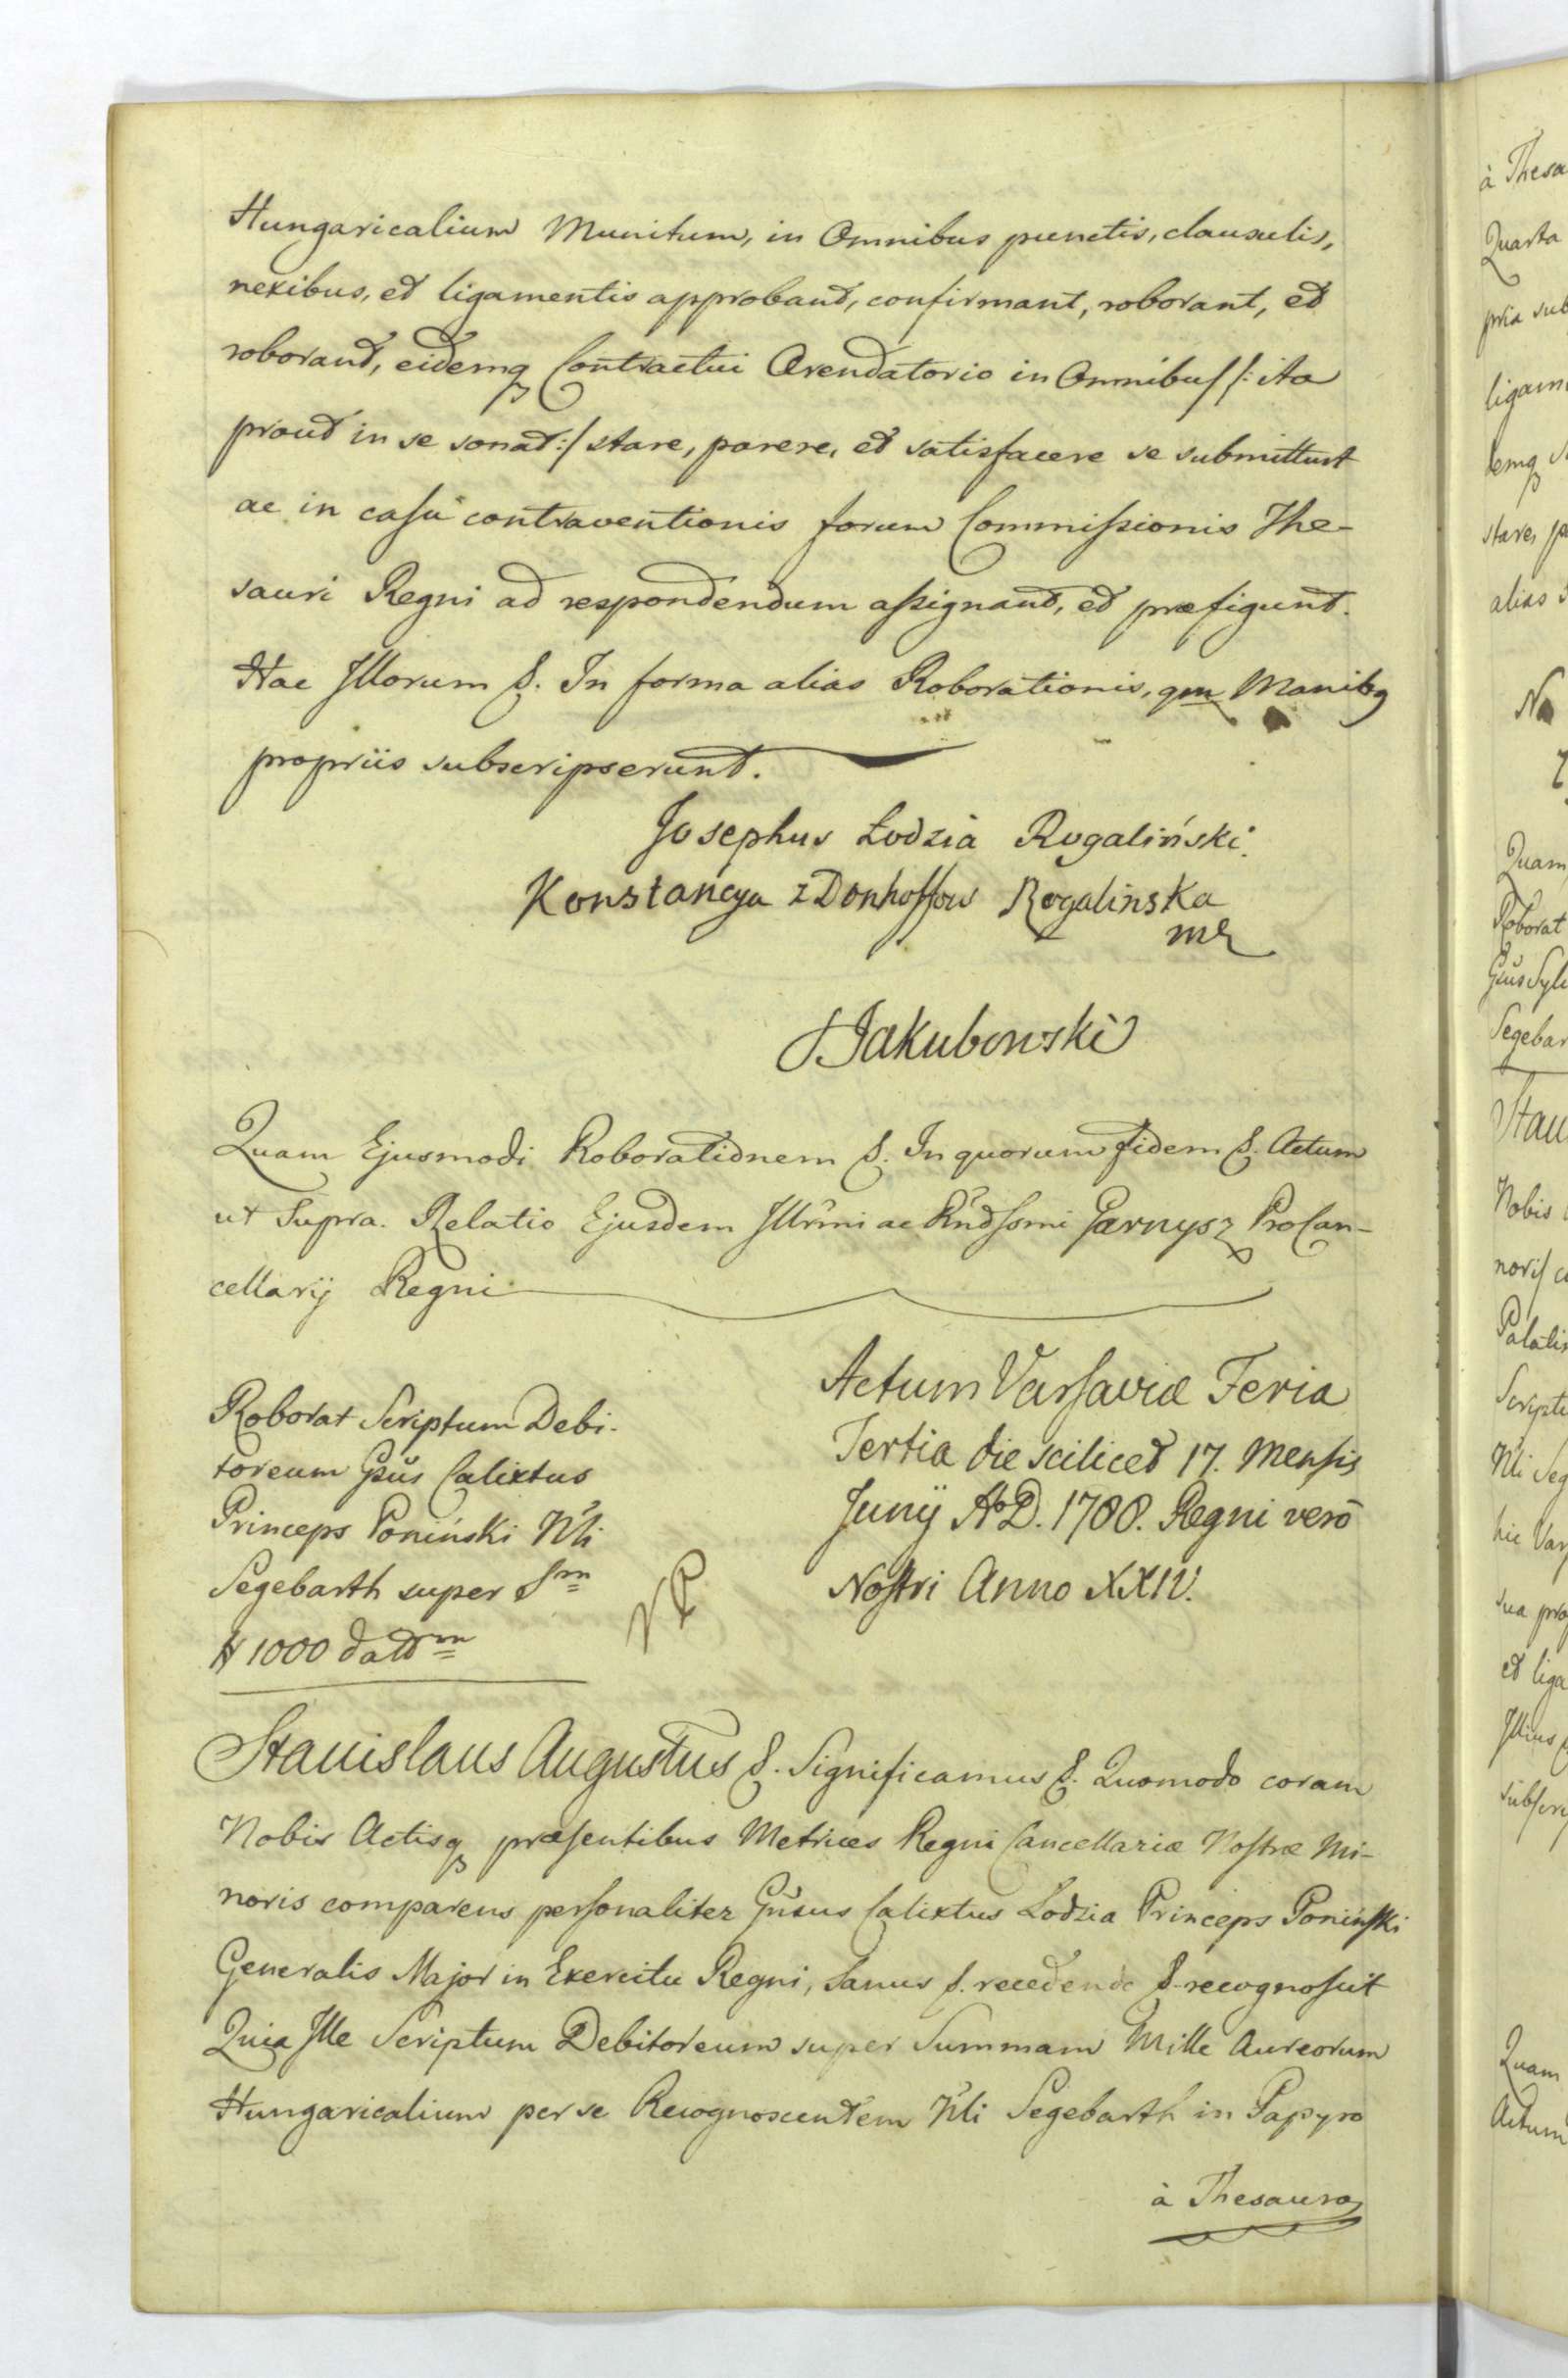 Hungaricalium Munitum, in Omnibus punctis, clausulis,
nexibus, et ligamentis approbant, confirmant, roborant, et
roborant, eidemq Contractui Arendatorio in Omnibus /: ita
prout in se sonat :/ stare, parere, et satisfacere se submittunt
ac in casu contraventionis forum Commissionis The-
sauri Regni ad respondendum assignant, et præfigunt.
Hac Illorum &. In forma alias Roborationis, qm Manibq
propriis subscripserunt.
Josephus Łodzia Rogaliński.
Konstancya z Donhoffow Rogalinska
mp
JJakubowski
Quam Ejusmodi Roborationem &. In quorum fidem &. Actum
ut Supra. Relatio Ejusdem Illrmi ac Rndssmi Garnysz ProCan-
cellarij Regni
Roborat Scriptum Debi-
toreum Gsus Calixtus
Princeps Poniński Nli
Segebarth super Sm
# 1000 datm
Actum Varsaviæ Feria
Tertia die scilicet 17. Mensis
Junij A°D. 1788. Regni verò
Nostri Anno XXIV.
Stanislaus Augustus &. Significamus &. Quomodo coram
Nobis Actisq præsentibus Metrices Regni Cancellariæ Nostræ Mi-
noris comparens personaliter Gnsus Calixtus Lodzia Princeps Poniński
Generalis Major in Exercitu Regni, Sanus &. recedendo &. recognoscit
Quia Ille Scriptum Debitoreum super Summam Mille Aureorum
Hungaricalium per se Recognoscentem Nli Segebarth in Papyro
à Thesauro
à Thesa
Quarta
pria sub
ligam
demq
stare, pa
alias
Quam
Roborat
Gsus Syl
Segebar
Stan
Nobis
noris c
Palati
Scriptu
Nli Seg
hic Var
sua pro
et liga
Illius
subscri
Quam
Actum